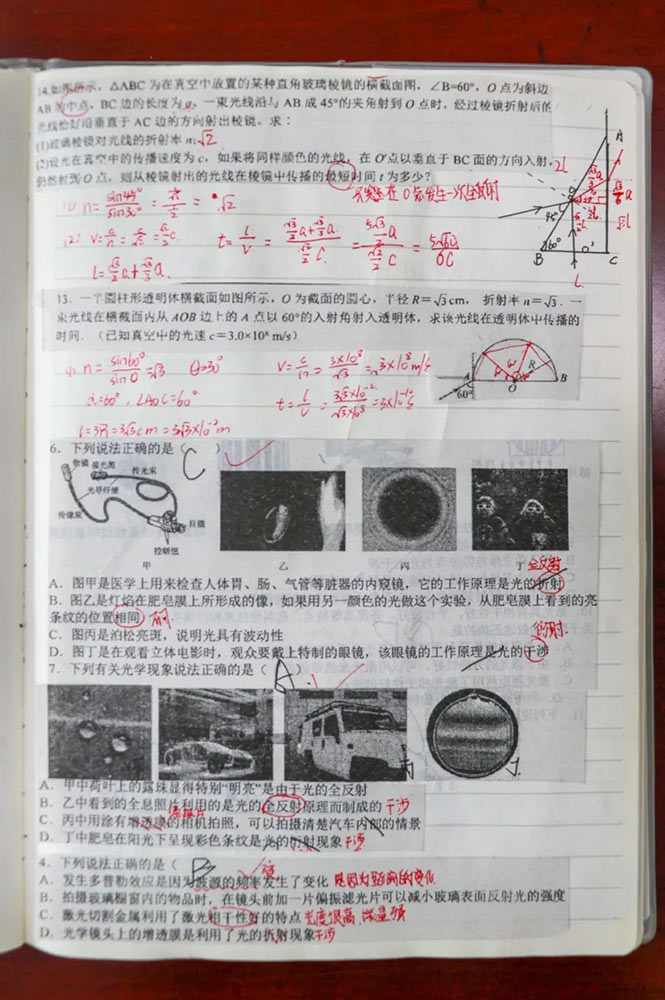 14.如图所示，△ABC 为在真空中放置的某种直角玻璃棱镜的横截面图，∠B=60°，O 点为斜边
AB 的中点，BC 边的长度为 a，一束光线沿与 AB 成 45°的夹角射到 O 点时，经过棱镜折射后的
光线恰好沿垂直于 AC 边的方向射出棱镜。求：
(1)玻璃棱镜对光线的折射率 n; √2
(2)设光在真空中的传播速度为 c，如果将同样颜色的光线，在 O′点以垂直于 BC 面的方向入射，
仍然射到 O 点，则从棱镜射出的光线在棱镜中传播的最短时间 t 为多少？
(1) n = sin45°/sin30° = = √2
(2) v = c/n = c/√2 = √2/2 c.
t = l/v =
l = √3/2 a + √3/3 a.
A
O
45°
60°
B
O′
C
13. 一个圆柱形透明体横截面如图所示，O 为截面的圆心，半径 R = √3 cm， 折射率 n = √3．一
束光线在横截面内从 AOB 边上的 A 点以 60°的入射角射入透明体，求该光线在透明体中传播的
时间．(已知真空中的光速 c = 3.0×10⁸ m/s)
n = sin60°/sinθ = √3 θ=30°
∠AOC = 60°
v = c/n = 3×10⁸/√3 = √3×10⁸ m/s
l = 3R = 3√3 cm = 3√3×10⁻² m
A
60°
O
R
B
6. 下列说法正确的是（ C ）
物镜
传光束
光导纤维
传像束
目镜
控制钮
甲
乙
丙
丁
A．图甲是医学上用来检查人体胃、肠、气管等脏器的内窥镜，它的工作原理是光的折射 全反射
B．图乙是灯焰在肥皂膜上所形成的像，如果用另一颜色的光做这个实验，从肥皂膜上看到的亮
条纹的位置相同
C．图丙是泊松亮斑，说明光具有波动性
D．图丁是在观看立体电影时，观众要戴上特制的眼镜，该眼镜的工作原理是光的干涉
7. 下列有关光学现象说法正确的是（ A ）
A．甲中荷叶上的露珠显得特别“明亮”是由于光的全反射
B．乙中看到的全息照片利用的是光的全反射原理而制成的 干涉
C．丙中用涂有增透膜的相机拍照，可以拍摄清楚汽车内部的情景
偏振片
D．丁中肥皂在阳光下呈现彩色条纹是光的折射现象 干涉
4. 下列说法正确的是（ B
A．发生多普勒效应是因为波源的频率发生了变化 是因为距离的变化
B．拍摄玻璃橱窗内的物品时，在镜头前加一片偏振滤光片可以减小玻璃表面反射光的强度
C．激光切割金属利用了激光相干性好的特点 亮度很高，能量强
D．光学镜头上的增透膜是利用了光的折射现象 干涉